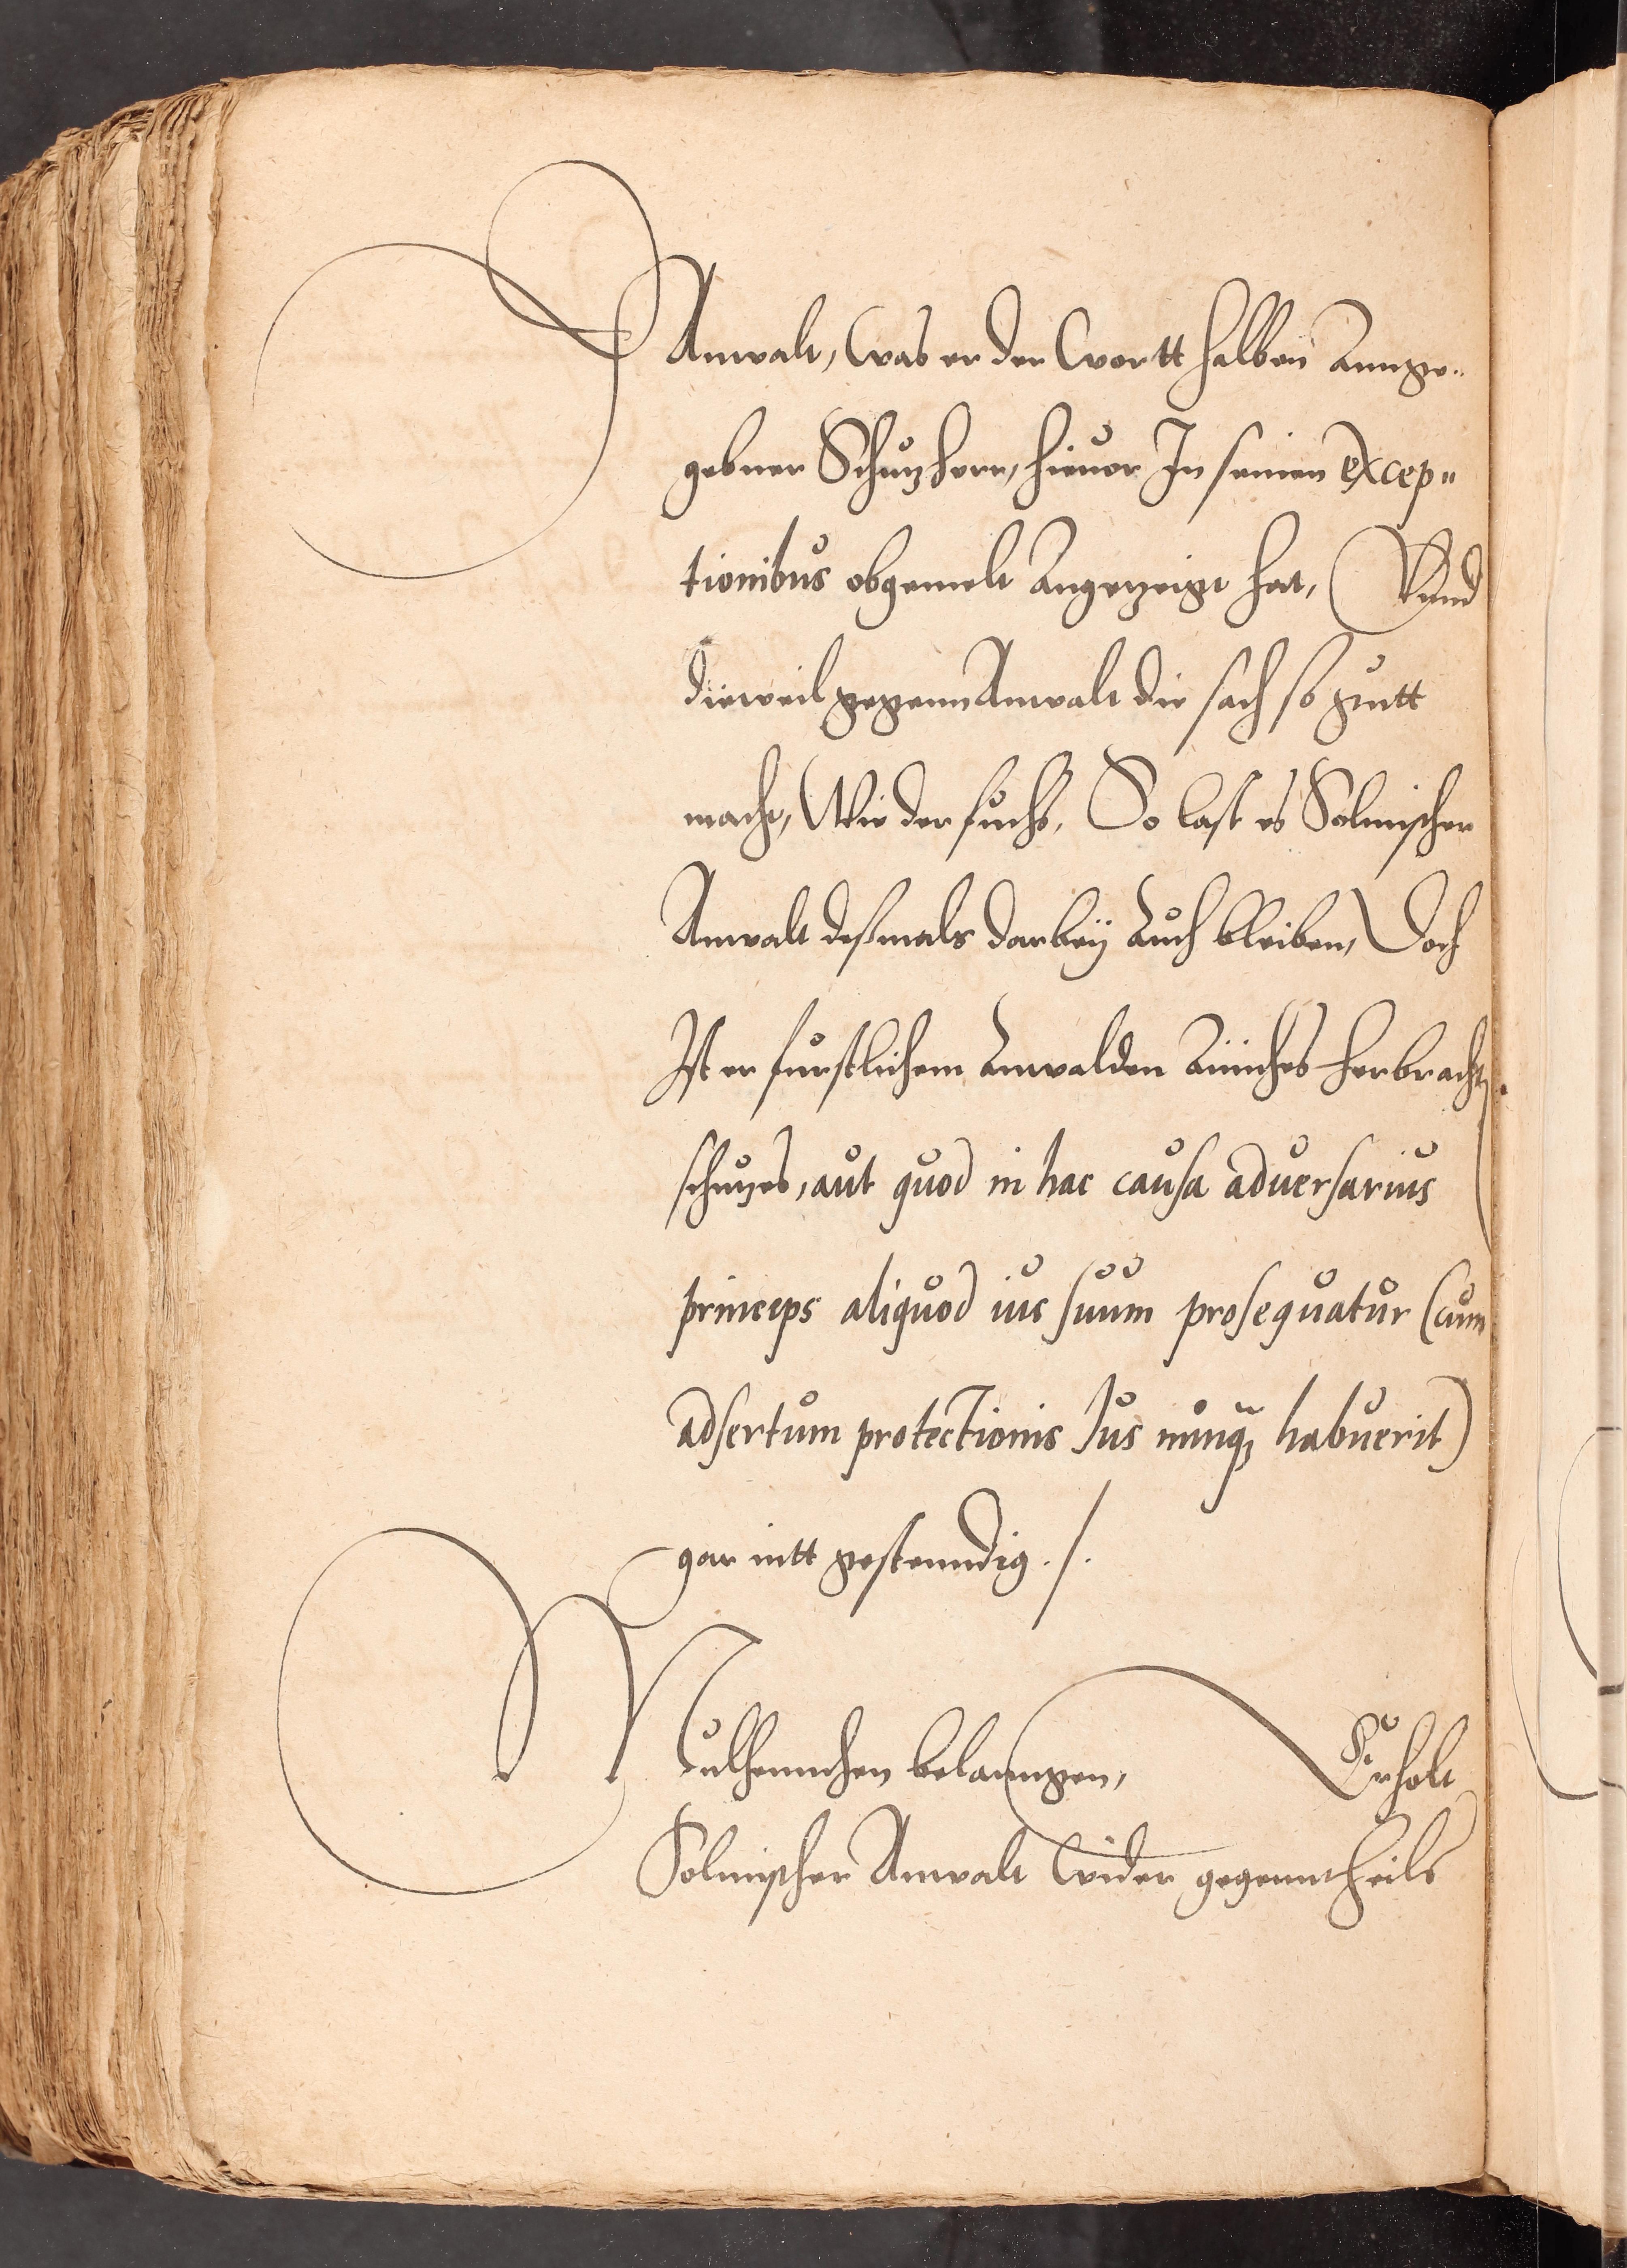 Anwalt, Was er der Wortt halben Annge„
gebner Schutzherr, hieuor In seinen excep„
tionibus obgemelt Angezeigt hat, Vnnd
dieweil gegenn Anwalt die sach so guett
macht, Wie der fuchs, So last es Solmischer
Anwalt dißmals darbey Auch bleiben, Doch
Ist er furstlichem Anwalden Ainiches herbrachts
schutzes, aut quod in hac causa aduersarius
princeps aliquod ius suum prosequatur (cum
adsertum protectionis Ius nunq̃ habuerit)
gar nitt gestenndig ./.
Mulhennchen belanngen, Erholt
Solmischer Anwalt wider gegenntheils